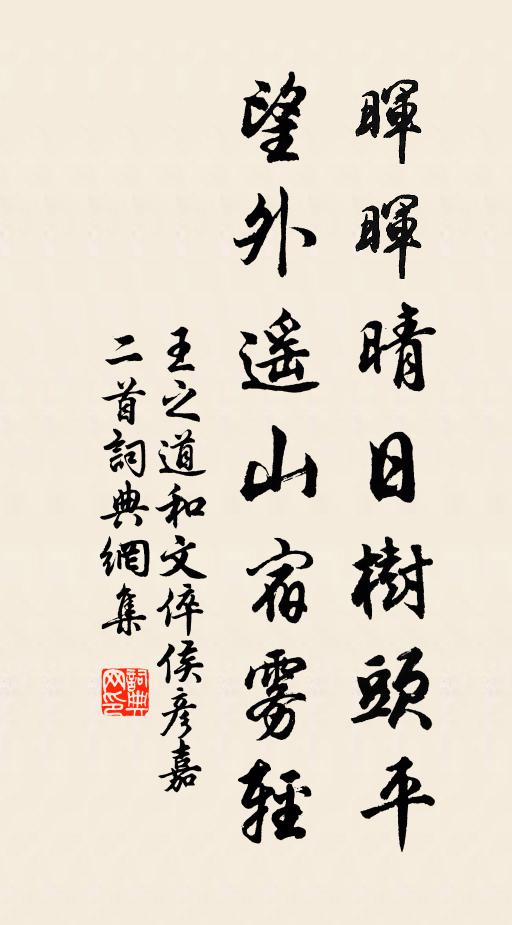 暉暉晴日樹頭平
望外遥山宿雾輕
王之道和文倅侯彦嘉
二首詞典網集
詞典网印